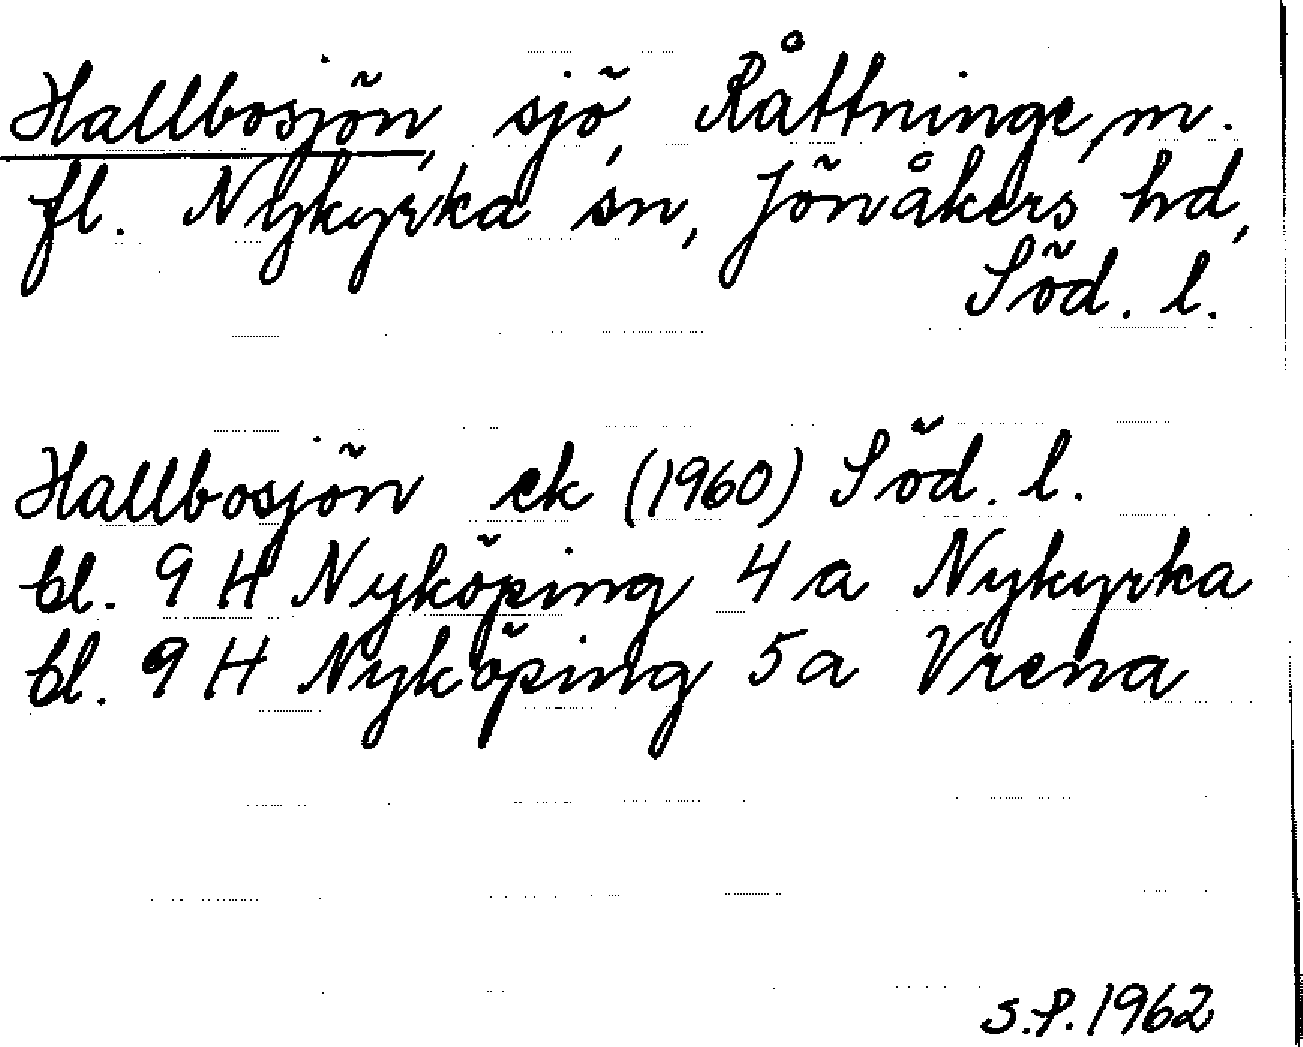 Hallbosjön, sjö, Råttninge, m.
fl. Nykyrka sn, Jönåkers hd,
Söd. l.
Hallbosjön ek (1960) Söd. l.
bl. 9 H Nyköping 4 a Nykyrka
bl. 9 H Nyköping 5 a Vrena
S.P. 1962